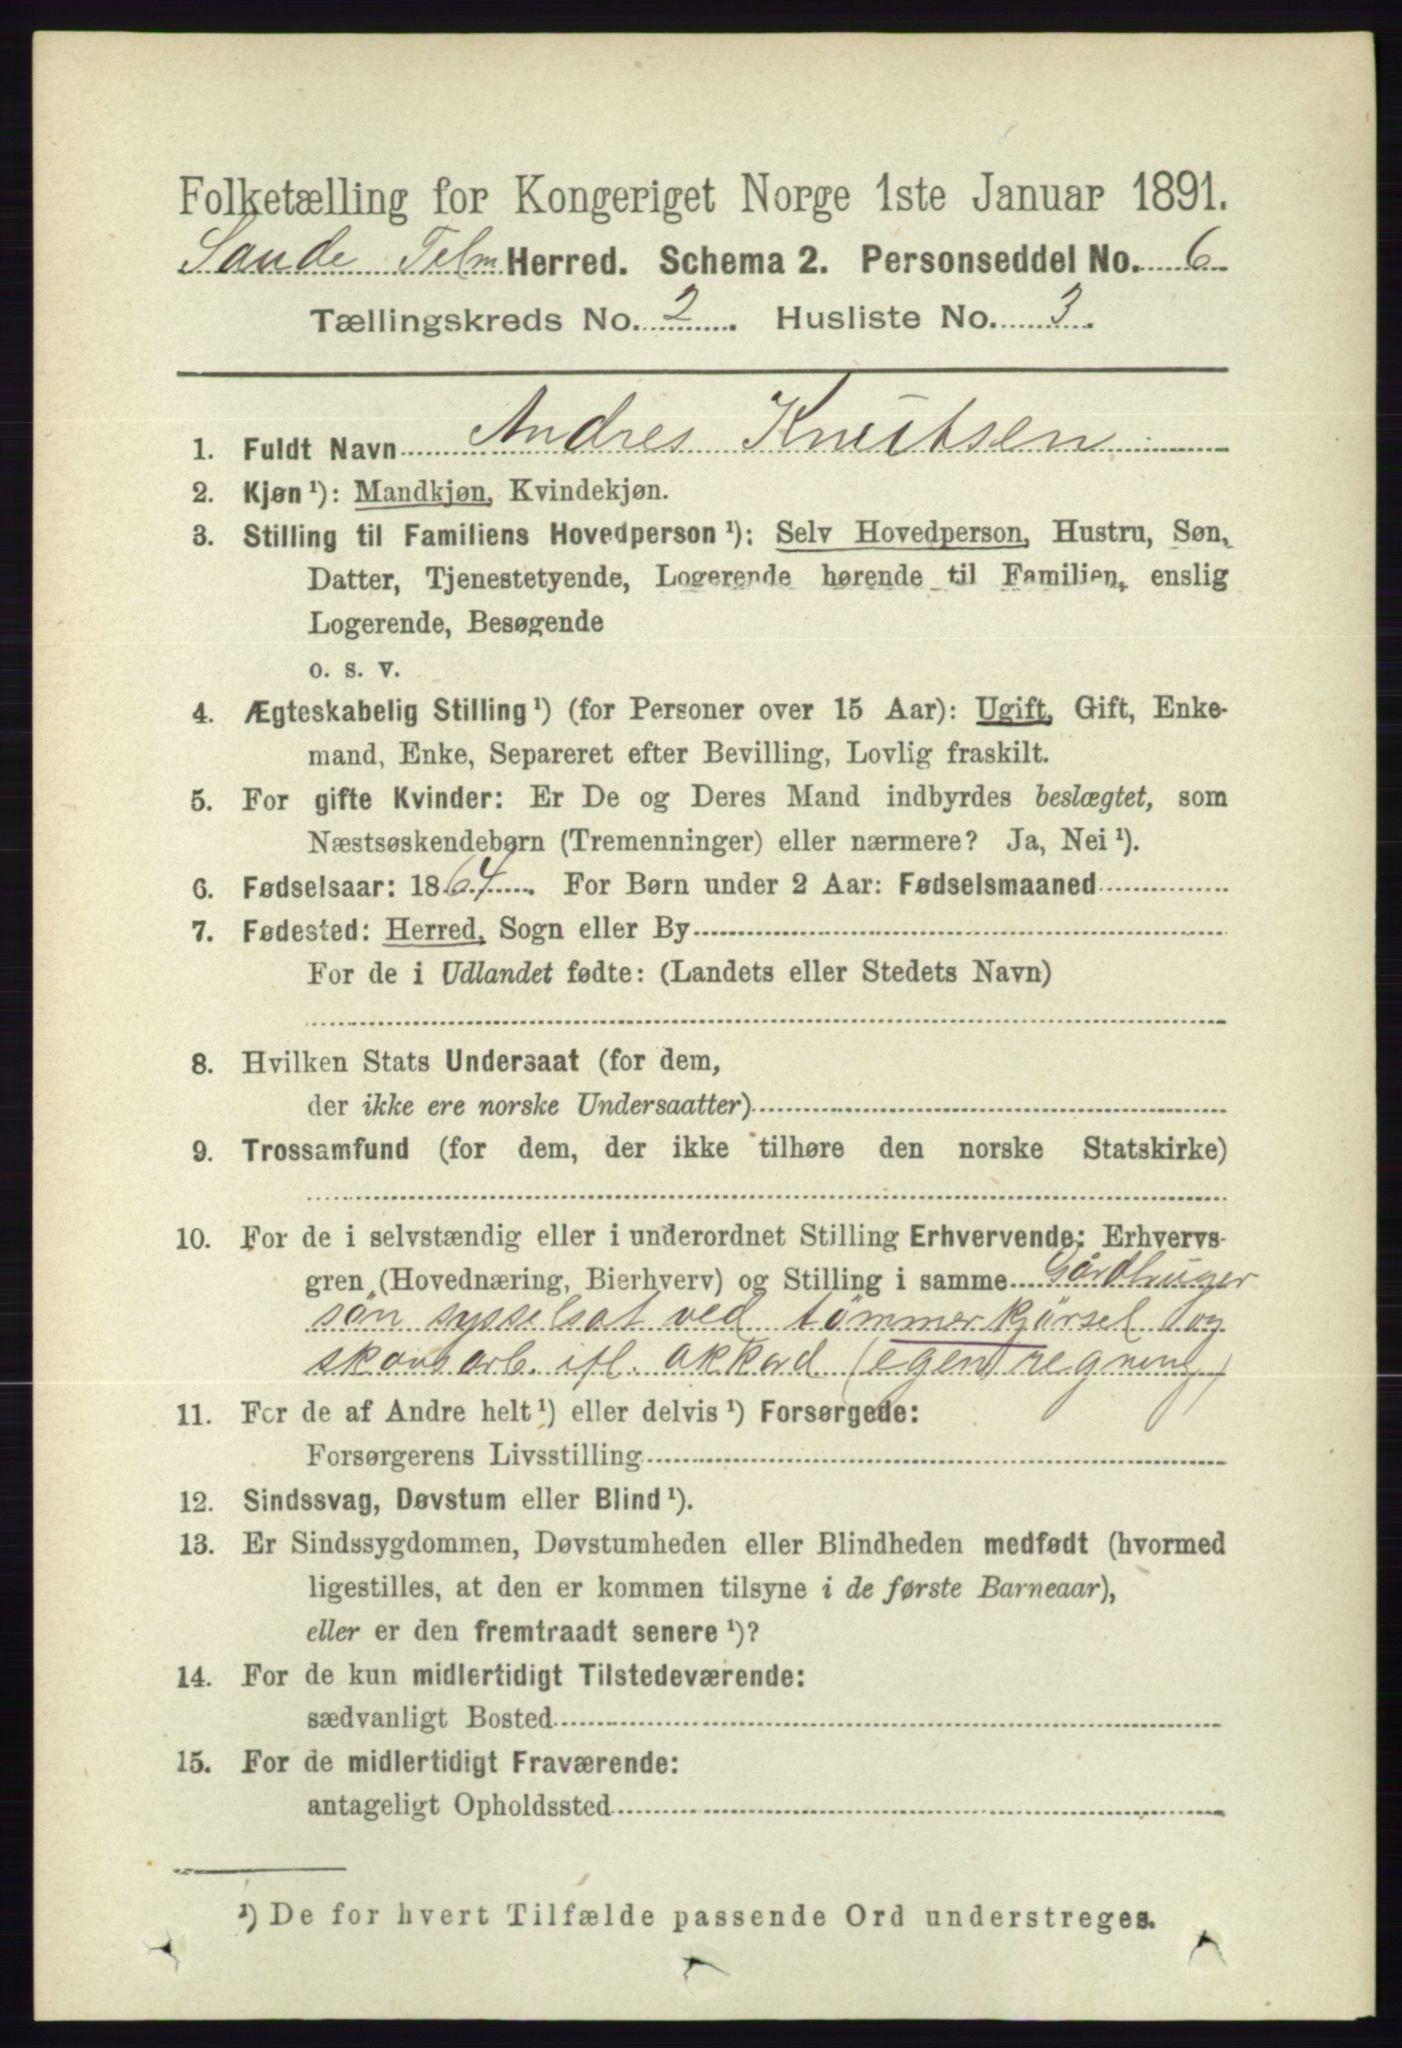 Folketælling for Kongeriget Norge 1ste Januar 1891.
Sande Telm Herred. Schema 2. Personseddel No. 6
Tællingskreds No. 2. Husliste No. 3.
1. Fuldt Navn Andres Knutsen
2. Kjøn ¹): Mandkjøn, Kvindekjøn.
3. Stilling til Familiens Hovedperson ¹): Selv Hovedperson, Hustru, Søn,
Datter, Tjenestetyende, Logerende hørende til Familien, enslig
Logerende, Besøgende
o. s. v.
4. Ægteskabelig Stilling ¹) (for Personer over 15 Aar): Ugift, Gift, Enke-
mand, Enke, Separeret efter Bevilling, Lovlig fraskilt.
5. For gifte Kvinder: Er De og Deres Mand indbyrdes beslægtet, som
Næstsøskendebørn (Tremenninger) eller nærmere? Ja, Nei ¹).
6. Fødselsaar: 1864. For Børn under 2 Aar: Fødselsmaaned
7. Fødested: Herred, Sogn eller By
For de i Udlandet fødte: (Landets eller Stedets Navn)
8. Hvilken Stats Undersaat (for dem,
der ikke ere norske Undersaatter)
9. Trossamfund (for dem, der ikke tilhøre den norske Statskirke)
10. For de i selvstændig eller i underordnet Stilling Erhvervende: Erhvervs-
gren (Hovednæring, Bierhverv) og Stilling i samme Gårdbruger
søn sysselsat ved tømmerkjørsel og
skovsarb. ifl. akkord (egen regning)
11. For de af Andre helt ¹) eller delvis ¹) Forsørgede:
Forsørgerens Livsstilling
12. Sindssvag, Døvstum eller Blind ¹).
13. Er Sindssygdommen, Døvstumheden eller Blindheden medfødt (hvormed
ligestilles, at den er kommen tilsyne i de første Barneaar),
eller er den fremtraadt senere ¹)?
14. For de kun midlertidigt Tilstedeværende:
sædvanligt Bosted
15. For de midlertidigt Fraværende:
antageligt Opholdssted
¹) De for hvert Tilfælde passende Ord understreges.